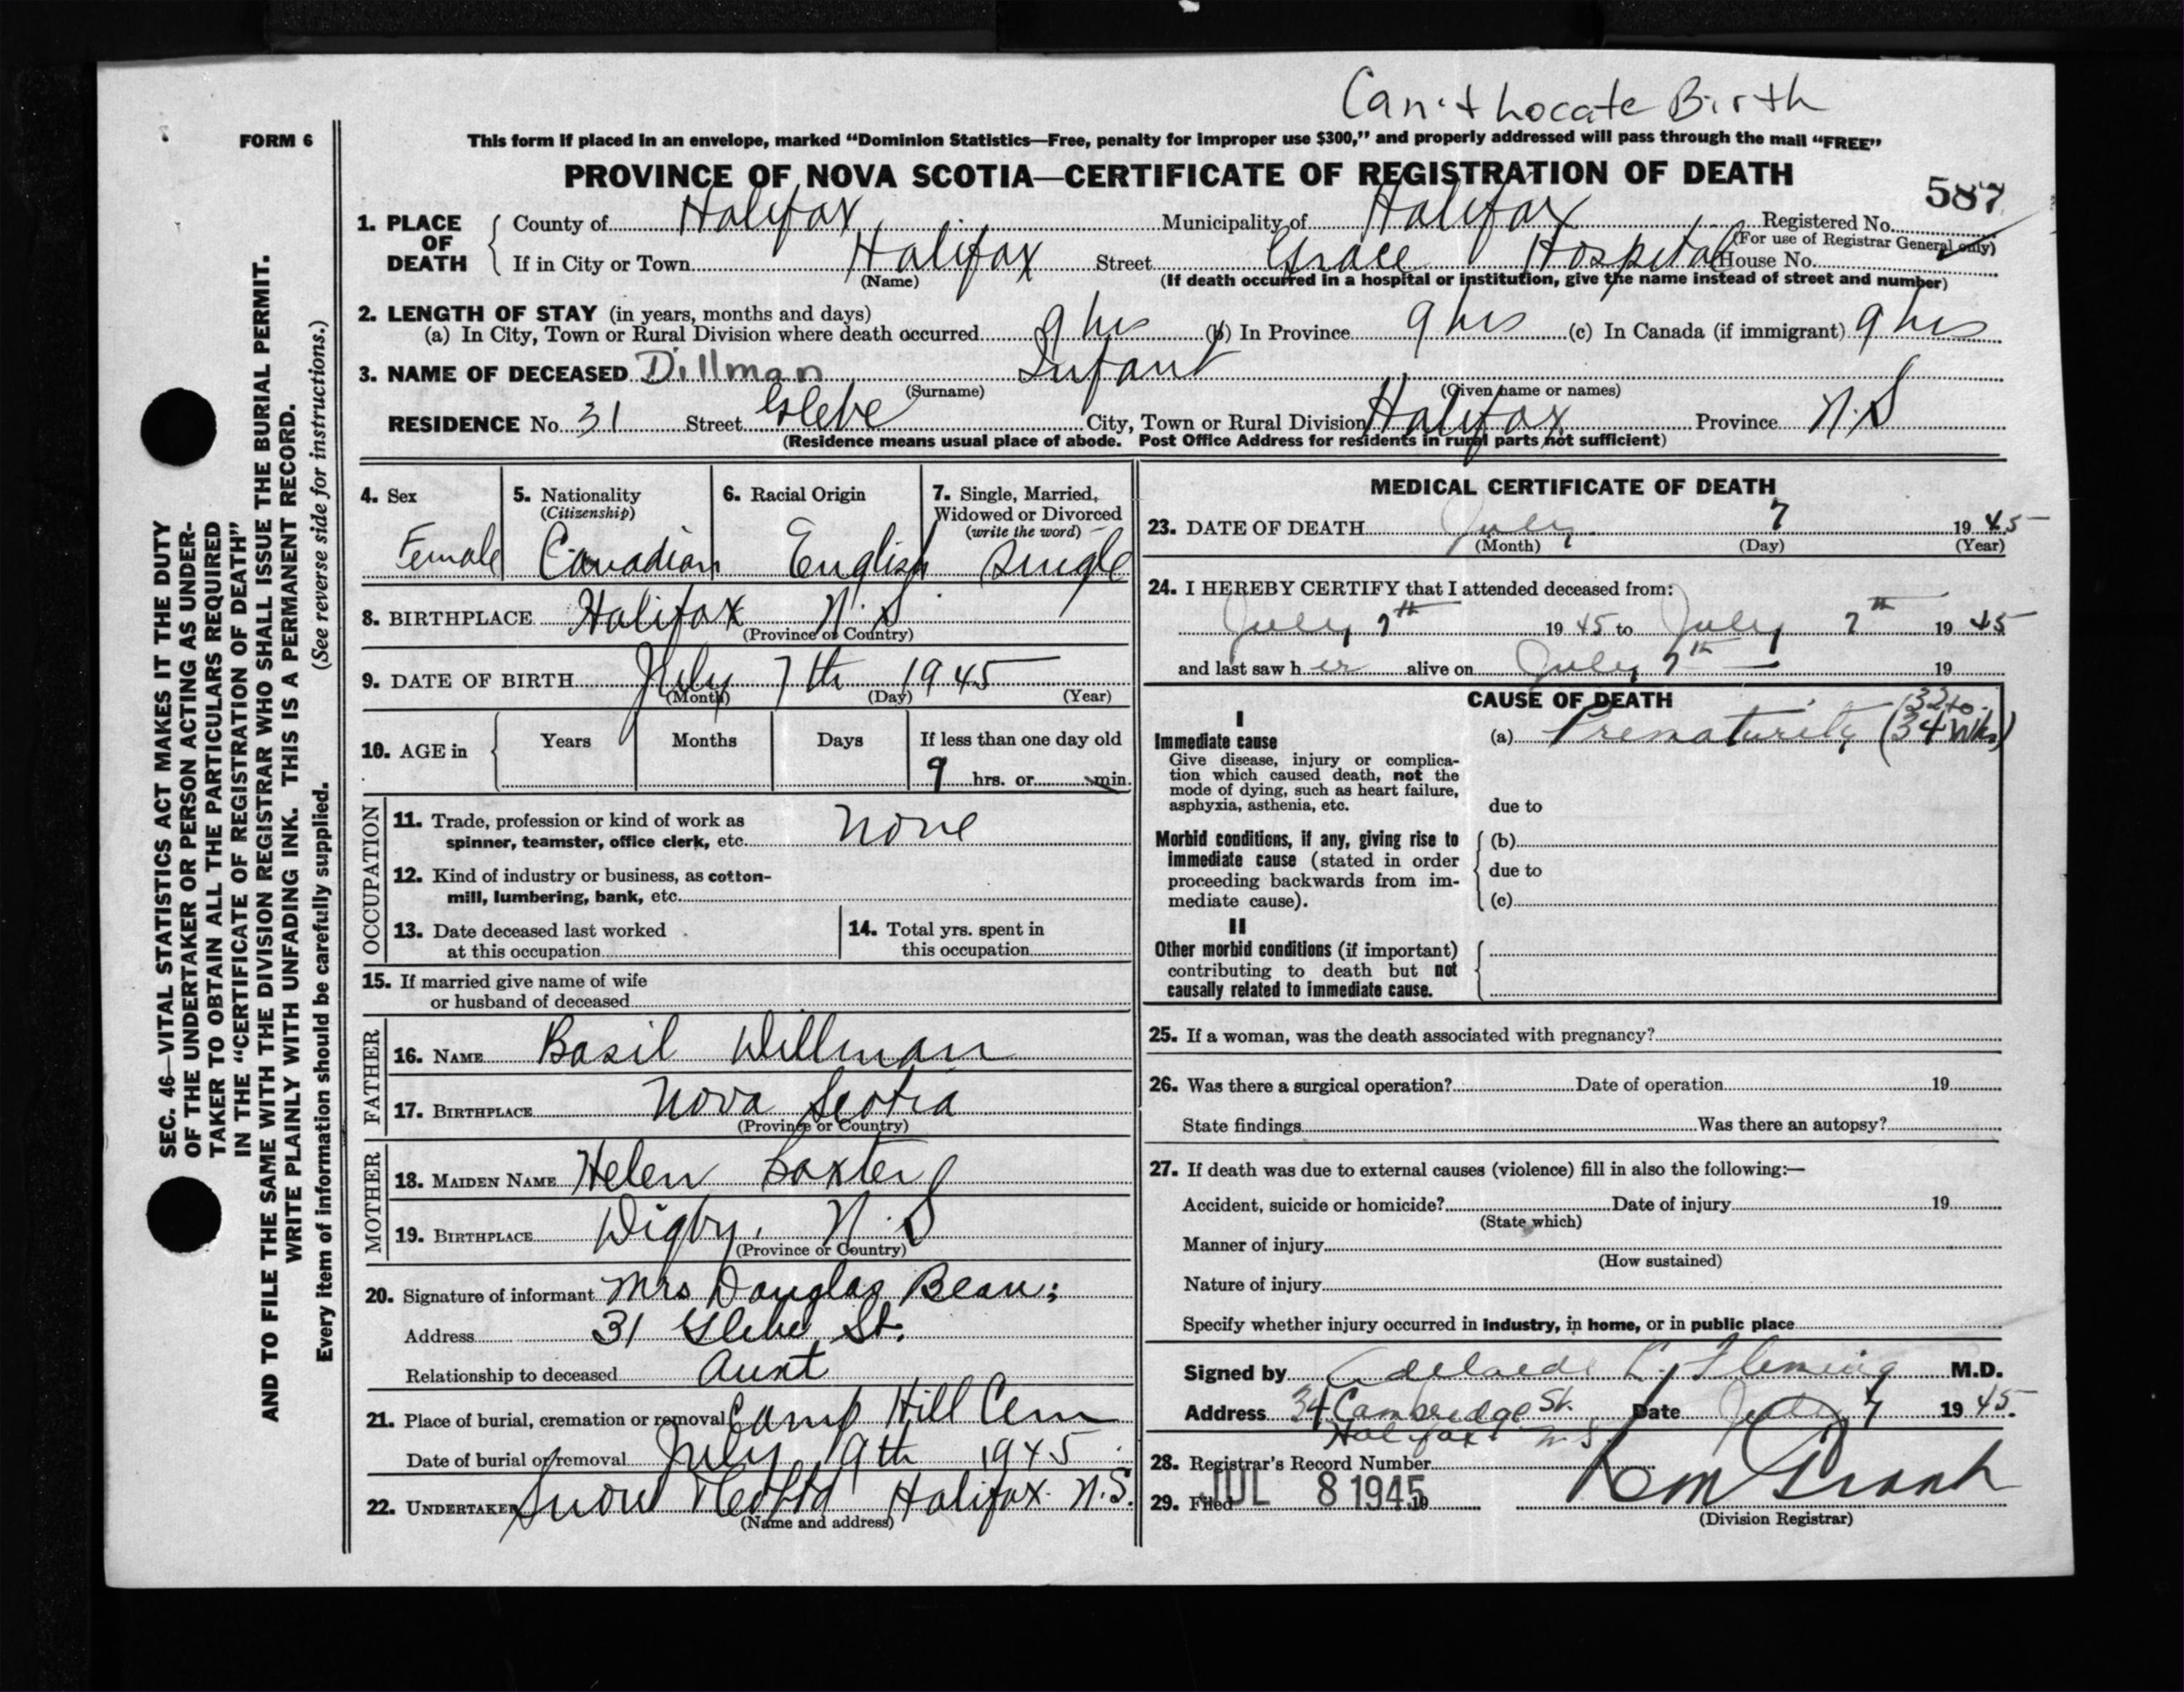 Can't Locate Birth
FORM 6
This form if placed in an envelope, marked “Dominion Statistics—Free, penalty for improper use $300,” and properly addressed will pass through the mail “FREE”
PROVINCE OF NOVA SCOTIA—CERTIFICATE OF REGISTRATION OF DEATH
587
1. PLACE OF DEATH
County of Halifax Municipality of Halifax Registered No.
(For use of Registrar General only)
If in City or Town Halifax Street Grace Hospital House No.
(Name) (If death occurred in a hospital or institution, give the name instead of street and number)
2. LENGTH OF STAY (in years, months and days)
(a) In City, Town or Rural Division where death occurred 9 hrs (b) In Province 9 hrs (c) In Canada (if immigrant) 9 hrs
3. NAME OF DECEASED Dillman Infant
(Surname) (Given name or names)
RESIDENCE No. 31 Street Glebe City, Town or Rural Division Halifax Province N.S
(Residence means usual place of abode. Post Office Address for residents in rural parts not sufficient)
4. Sex 5. Nationality 6. Racial Origin 7. Single, Married,
(Citizenship) Widowed or Divorced
(write the word)
Female Canadian English Single
8. BIRTHPLACE Halifax N.S.
(Province or Country)
9. DATE OF BIRTH July 7th 1945
(Month) (Day) (Year)
10. AGE in Years Months Days If less than one day old
9 hrs. or min.
OCCUPATION
11. Trade, profession or kind of work as
spinner, teamster, office clerk, etc. None
12. Kind of industry or business, as cotton-
mill, lumbering, bank, etc.
13. Date deceased last worked 14. Total yrs. spent in
at this occupation this occupation
15. If married give name of wife
or husband of deceased
FATHER
16. NAME Basil Dillman
17. BIRTHPLACE Nova Scotia
(Province or Country)
MOTHER
18. MAIDEN NAME Helen Baxter
19. BIRTHPLACE Digby, N.S
(Province or Country)
20. Signature of informant Mrs Douglas Bean;
Address 31 Glebe St.
Relationship to deceased Aunt
21. Place of burial, cremation or removal Camp Hill Cem
Date of burial or removal July 9th 1945
22. UNDERTAKER Snow Halifax N.S.
(Name and address)
MEDICAL CERTIFICATE OF DEATH
23. DATE OF DEATH July 7 1945
(Month) (Day) (Year)
24. I HEREBY CERTIFY that I attended deceased from:
July 7th 1945 to July 7th 1945
and last saw her alive on July 7th 19
CAUSE OF DEATH
I
Immediate cause
Give disease, injury or complica-
tion which caused death, not the
mode of dying, such as heart failure,
asphyxia, asthenia, etc.
(a) Prematurity (32 to 34 Wks)
due to
Morbid conditions, if any, giving rise to
immediate cause (stated in order
proceeding backwards from im-
mediate cause).
(b)
due to
(c)
II
Other morbid conditions (if important)
contributing to death but not
causally related to immediate cause.
25. If a woman, was the death associated with pregnancy?
26. Was there a surgical operation? Date of operation 19
State findings Was there an autopsy?
27. If death was due to external causes (violence) fill in also the following:—
Accident, suicide or homicide? Date of injury 19
(State which)
Manner of injury
(How sustained)
Nature of injury
Specify whether injury occurred in industry, in home, or in public place
Signed by Adelaide L. Fleming M.D.
Address 34 Cambridge St. Date July 7 1945.
Halifax N.S
28. Registrar's Record Number
29. Filed JUL 8 1945 19
(Division Registrar)
SEC. 46—VITAL STATISTICS ACT MAKES IT THE DUTY
OF THE UNDERTAKER OR PERSON ACTING AS UNDER-
TAKER TO OBTAIN ALL THE PARTICULARS REQUIRED
IN THE “CERTIFICATE OF REGISTRATION OF DEATH”
AND TO FILE THE SAME WITH THE DIVISION REGISTRAR WHO SHALL ISSUE THE BURIAL PERMIT.
WRITE PLAINLY WITH UNFADING INK. THIS IS A PERMANENT RECORD.
Every item of information should be carefully supplied. (See reverse side for instructions.)